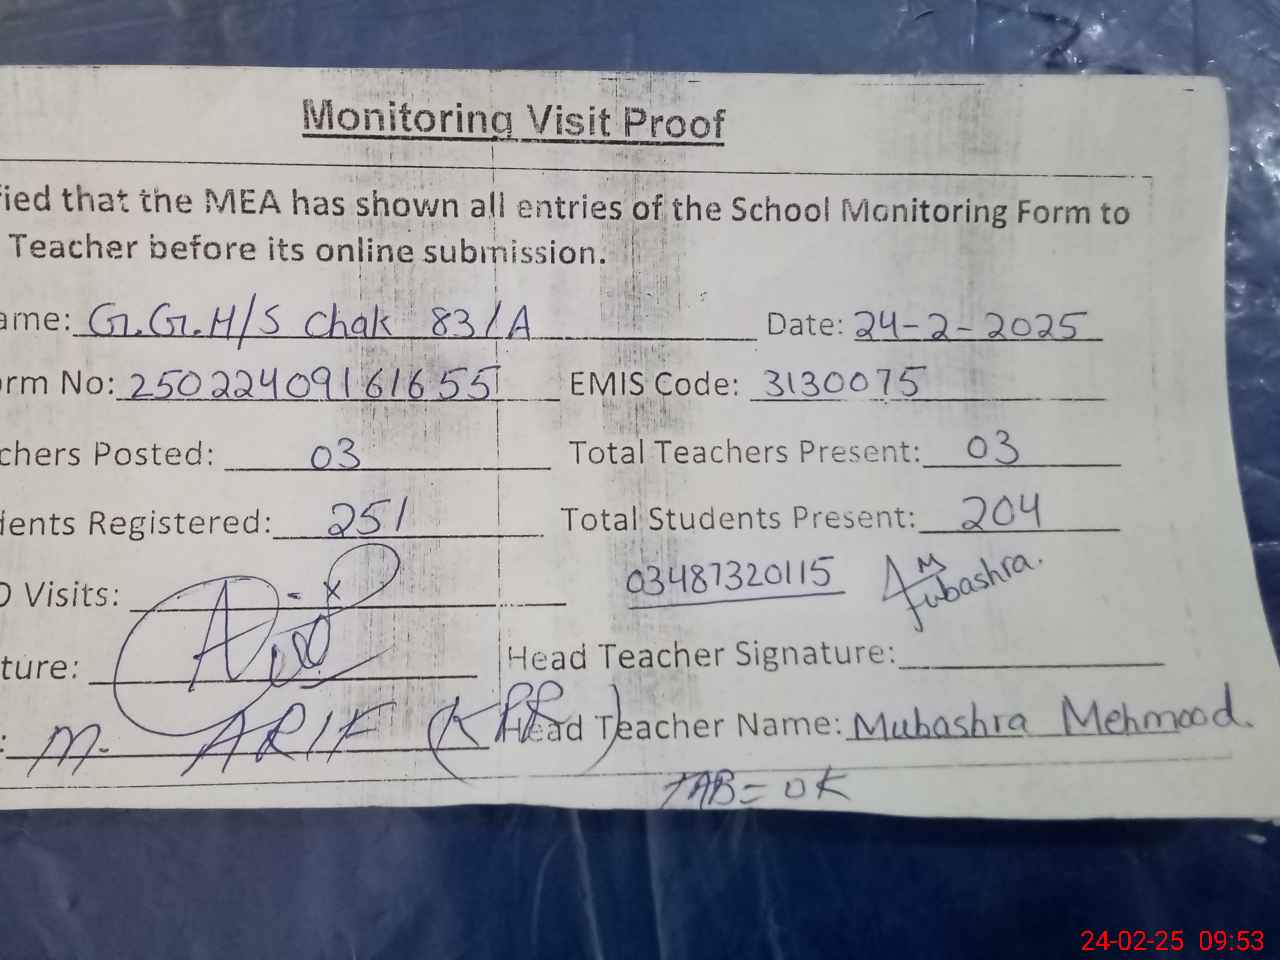 Monitoring Visit Proof
fied that the MEA has shown all entries of the School Monitoring Form to
Teacher before its online submission.
ame: G.G.H/S Chak 83/A Date: 24-2-2025
orm No: 25022409161655 EMIS Code: 3130075
chers Posted: 03 Total Teachers Present: 03
dents Registered: 251 Total Students Present: 204
O Visits: - x 03487320115 Mubashra.
ture: Head Teacher Signature:
: M. ARIF Head Teacher Name: Mubashra Mehmood.
TAB = OK
24-02-25 09:53